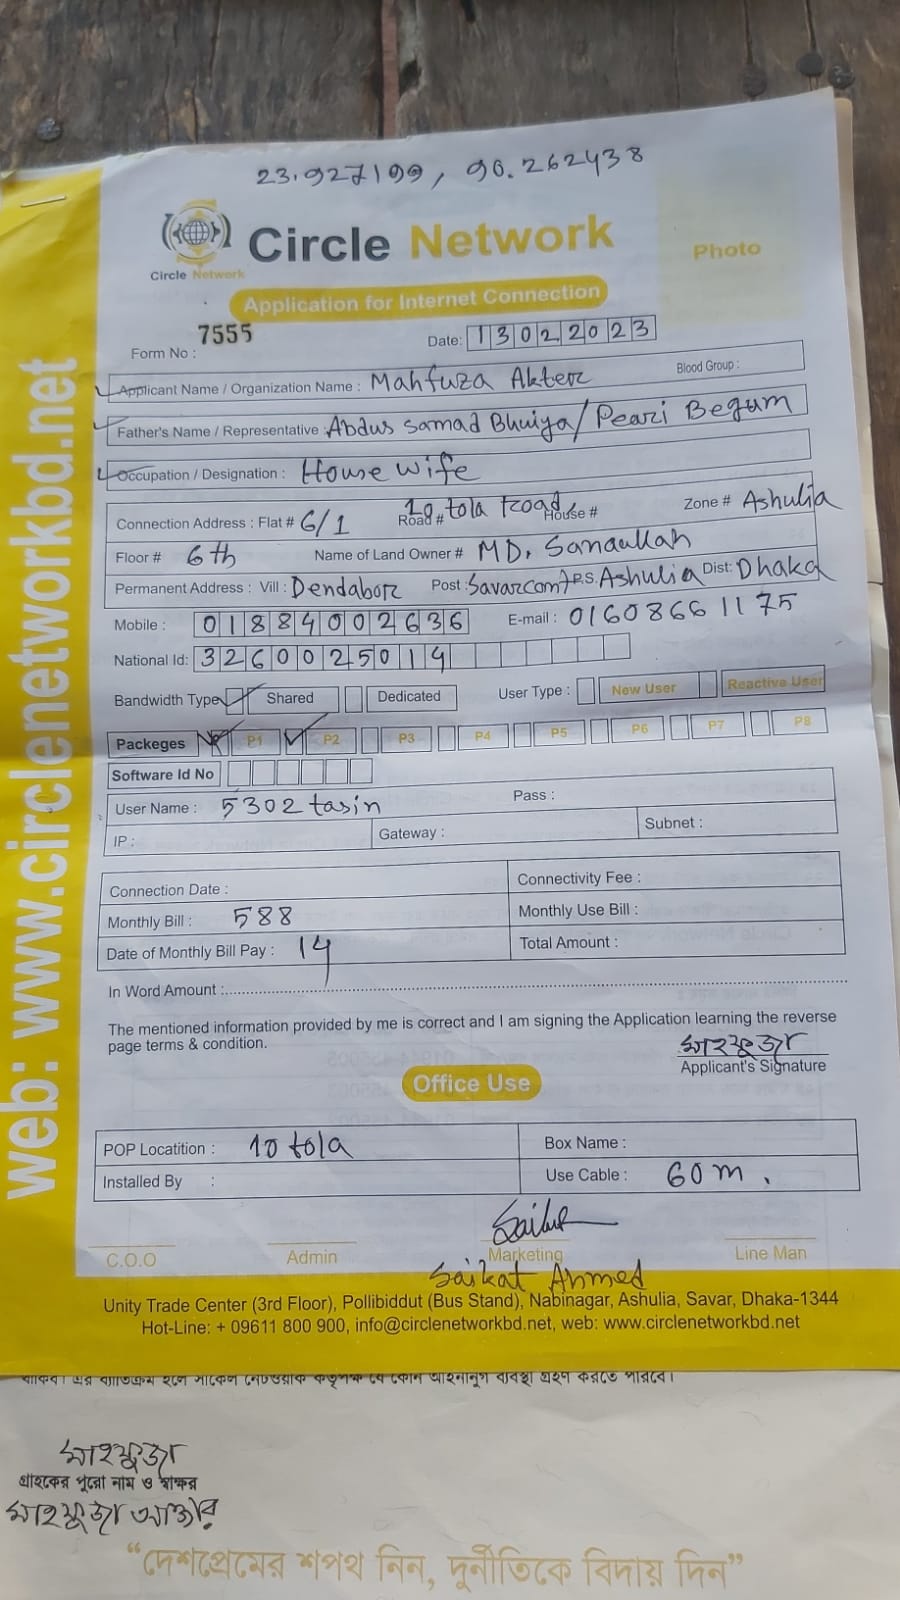 23.927199, 90.262438
Circle Network
Circle Network
Photo
Application for Internet Connection
Form No : 7555
Date: 13022023
Applicant Name / Organization Name : Mahfuza Akter
Blood Group :
Father's Name / Representative : Abdus Samad Bhuiya/Peari Begum
Occupation / Designation : House wife
Connection Address : Flat # 6/1 Road # 10 tola Road House # Zone # Ashulia
Floor # 6th Name of Land Owner # MD. Sanaullah
Permanent Address : Vill : Dendabor Post : Savarcant P.S. Ashulia Dist: Dhaka
Mobile : 01884002636 E-mail : 01608661175
National Id: 3260025014
Bandwidth Type Shared Dedicated User Type : New User Reactive User
Packeges P1 P2 P3 P4 P5 P6 P7 P8
Software Id No
User Name : 5302tasin Pass :
IP : Gateway : Subnet :
Connection Date : Connectivity Fee :
Monthly Bill : 588 Monthly Use Bill :
Date of Monthly Bill Pay : 14 Total Amount :
In Word Amount :
The mentioned information provided by me is correct and I am signing the Application learning the reverse
page terms & condition.
মাহফুজা
Applicant's Signature
Office Use
POP Locatition : 10 tola Box Name :
Installed By : Use Cable : 60m.
C.O.O Admin Marketing Line Man
Saikat Ahmed
Unity Trade Center (3rd Floor), Pollibiddut (Bus Stand), Nabinagar, Ashulia, Savar, Dhaka-1344
Hot-Line: + 09611 800 900, info@circlenetworkbd.net, web: www.circlenetworkbd.net
web: www.circlenetworkbd.net
মাহফুজা
গ্রাহকের পুরো নাম ও স্বাক্ষর
মাহফুজা আক্তার
“দেশপ্রেমের শপথ নিন, দুর্নীতিকে বিদায় দিন”